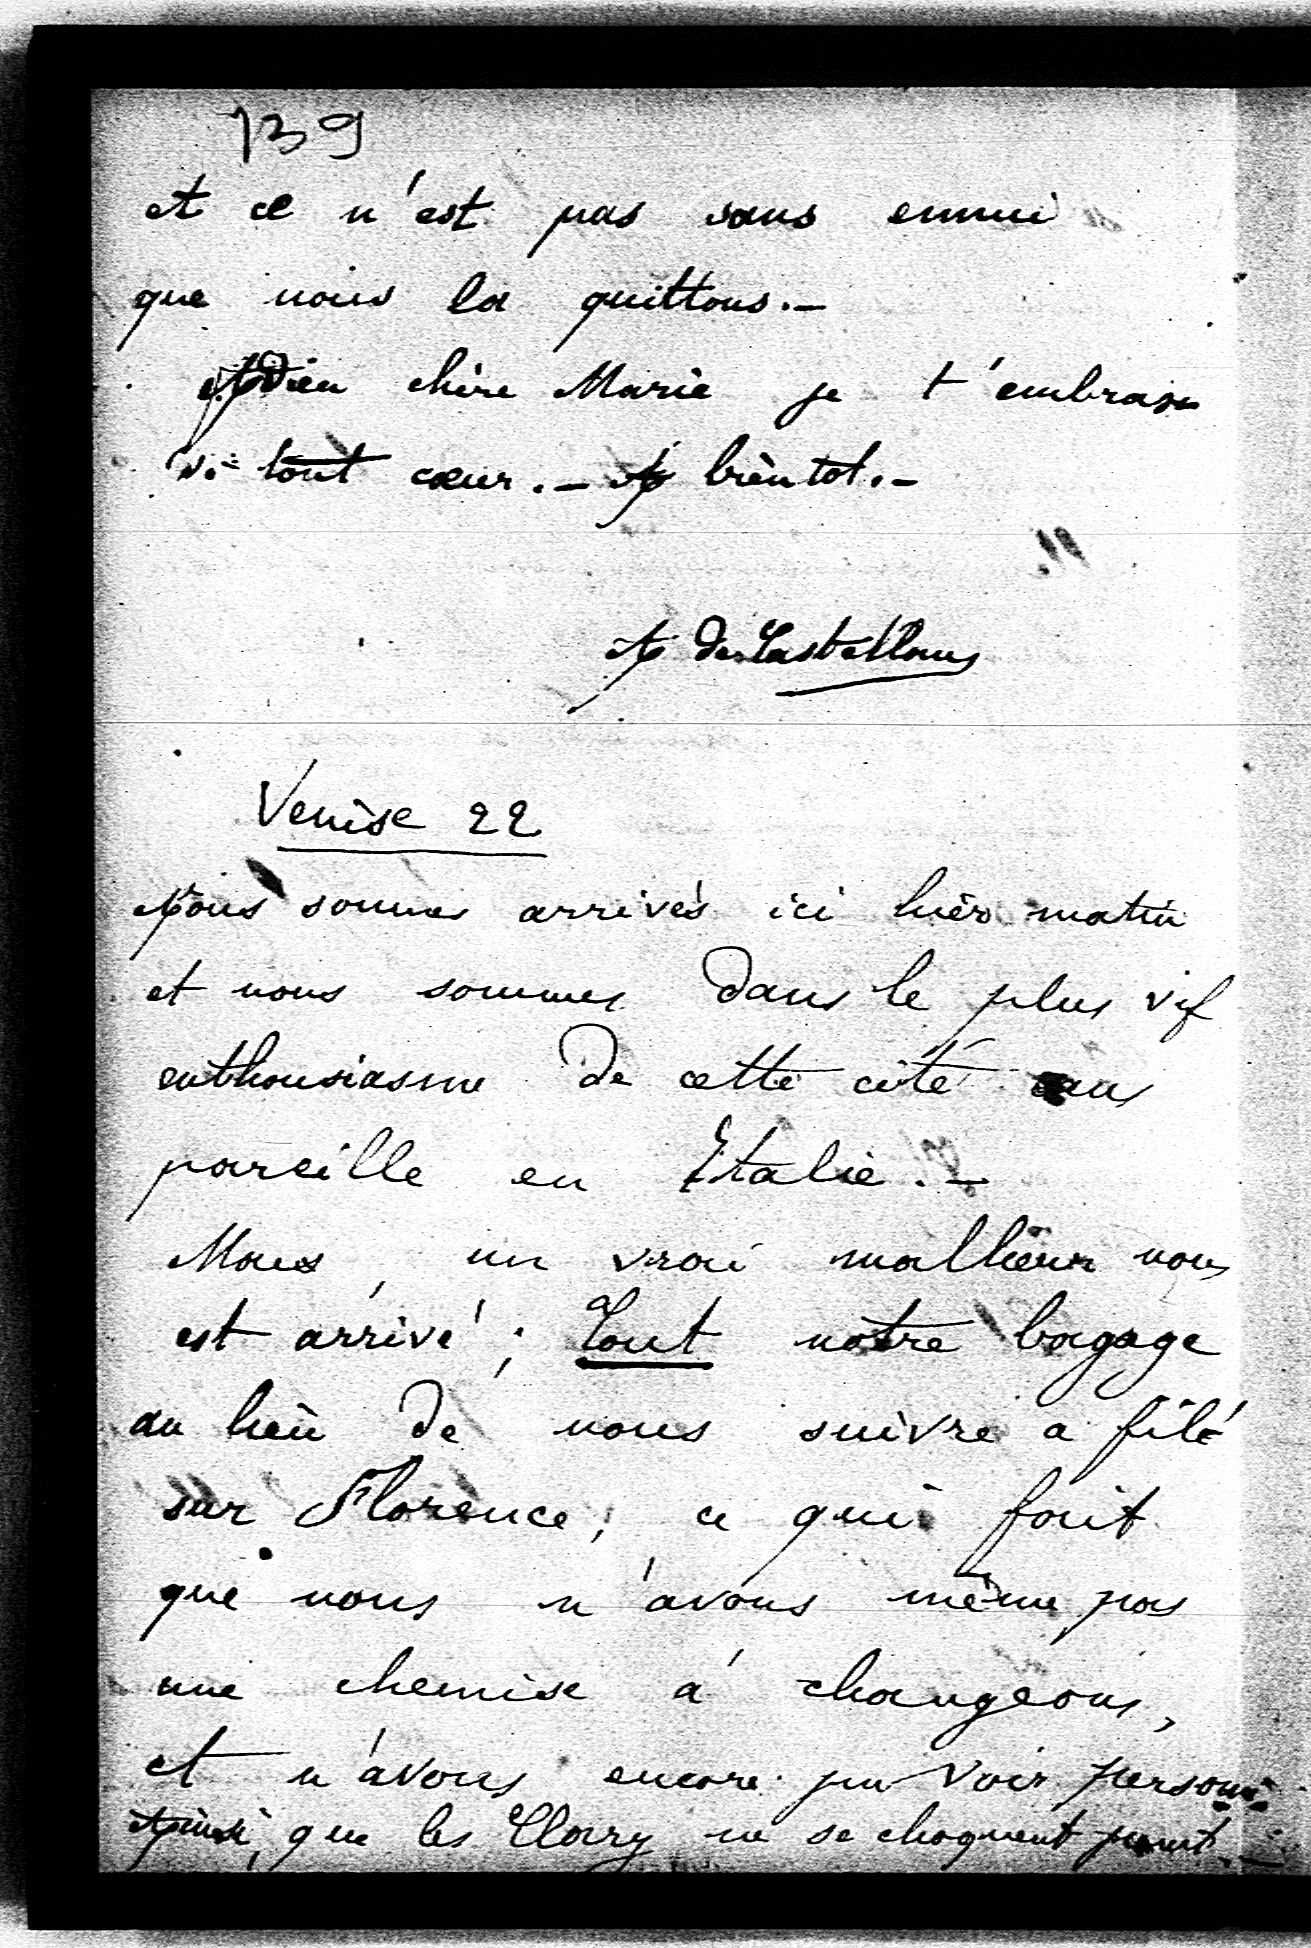 139
et ce n'est pas sans ennui
que nous la quittons.-
Adieu chère Marie je t'embrasse
de tout cœur.- A bientot.-
A de Castellane
Venise 22
Nous sommes arrivés ici hier matin
et nous sommes dans le plus vif
enthousiasme de cette cité sans
pareille en Italie.-
Mais, un vrai malheur nous
est arrivé; Tout notre bagage
au lieu de nous suivre a filé
sur Florence, ce qui fait
que nous n'avons même pas
une chemise à changeons,
et n'avons encore pu voir personne.
Ainsi, que les Clary ne se choquent point.-